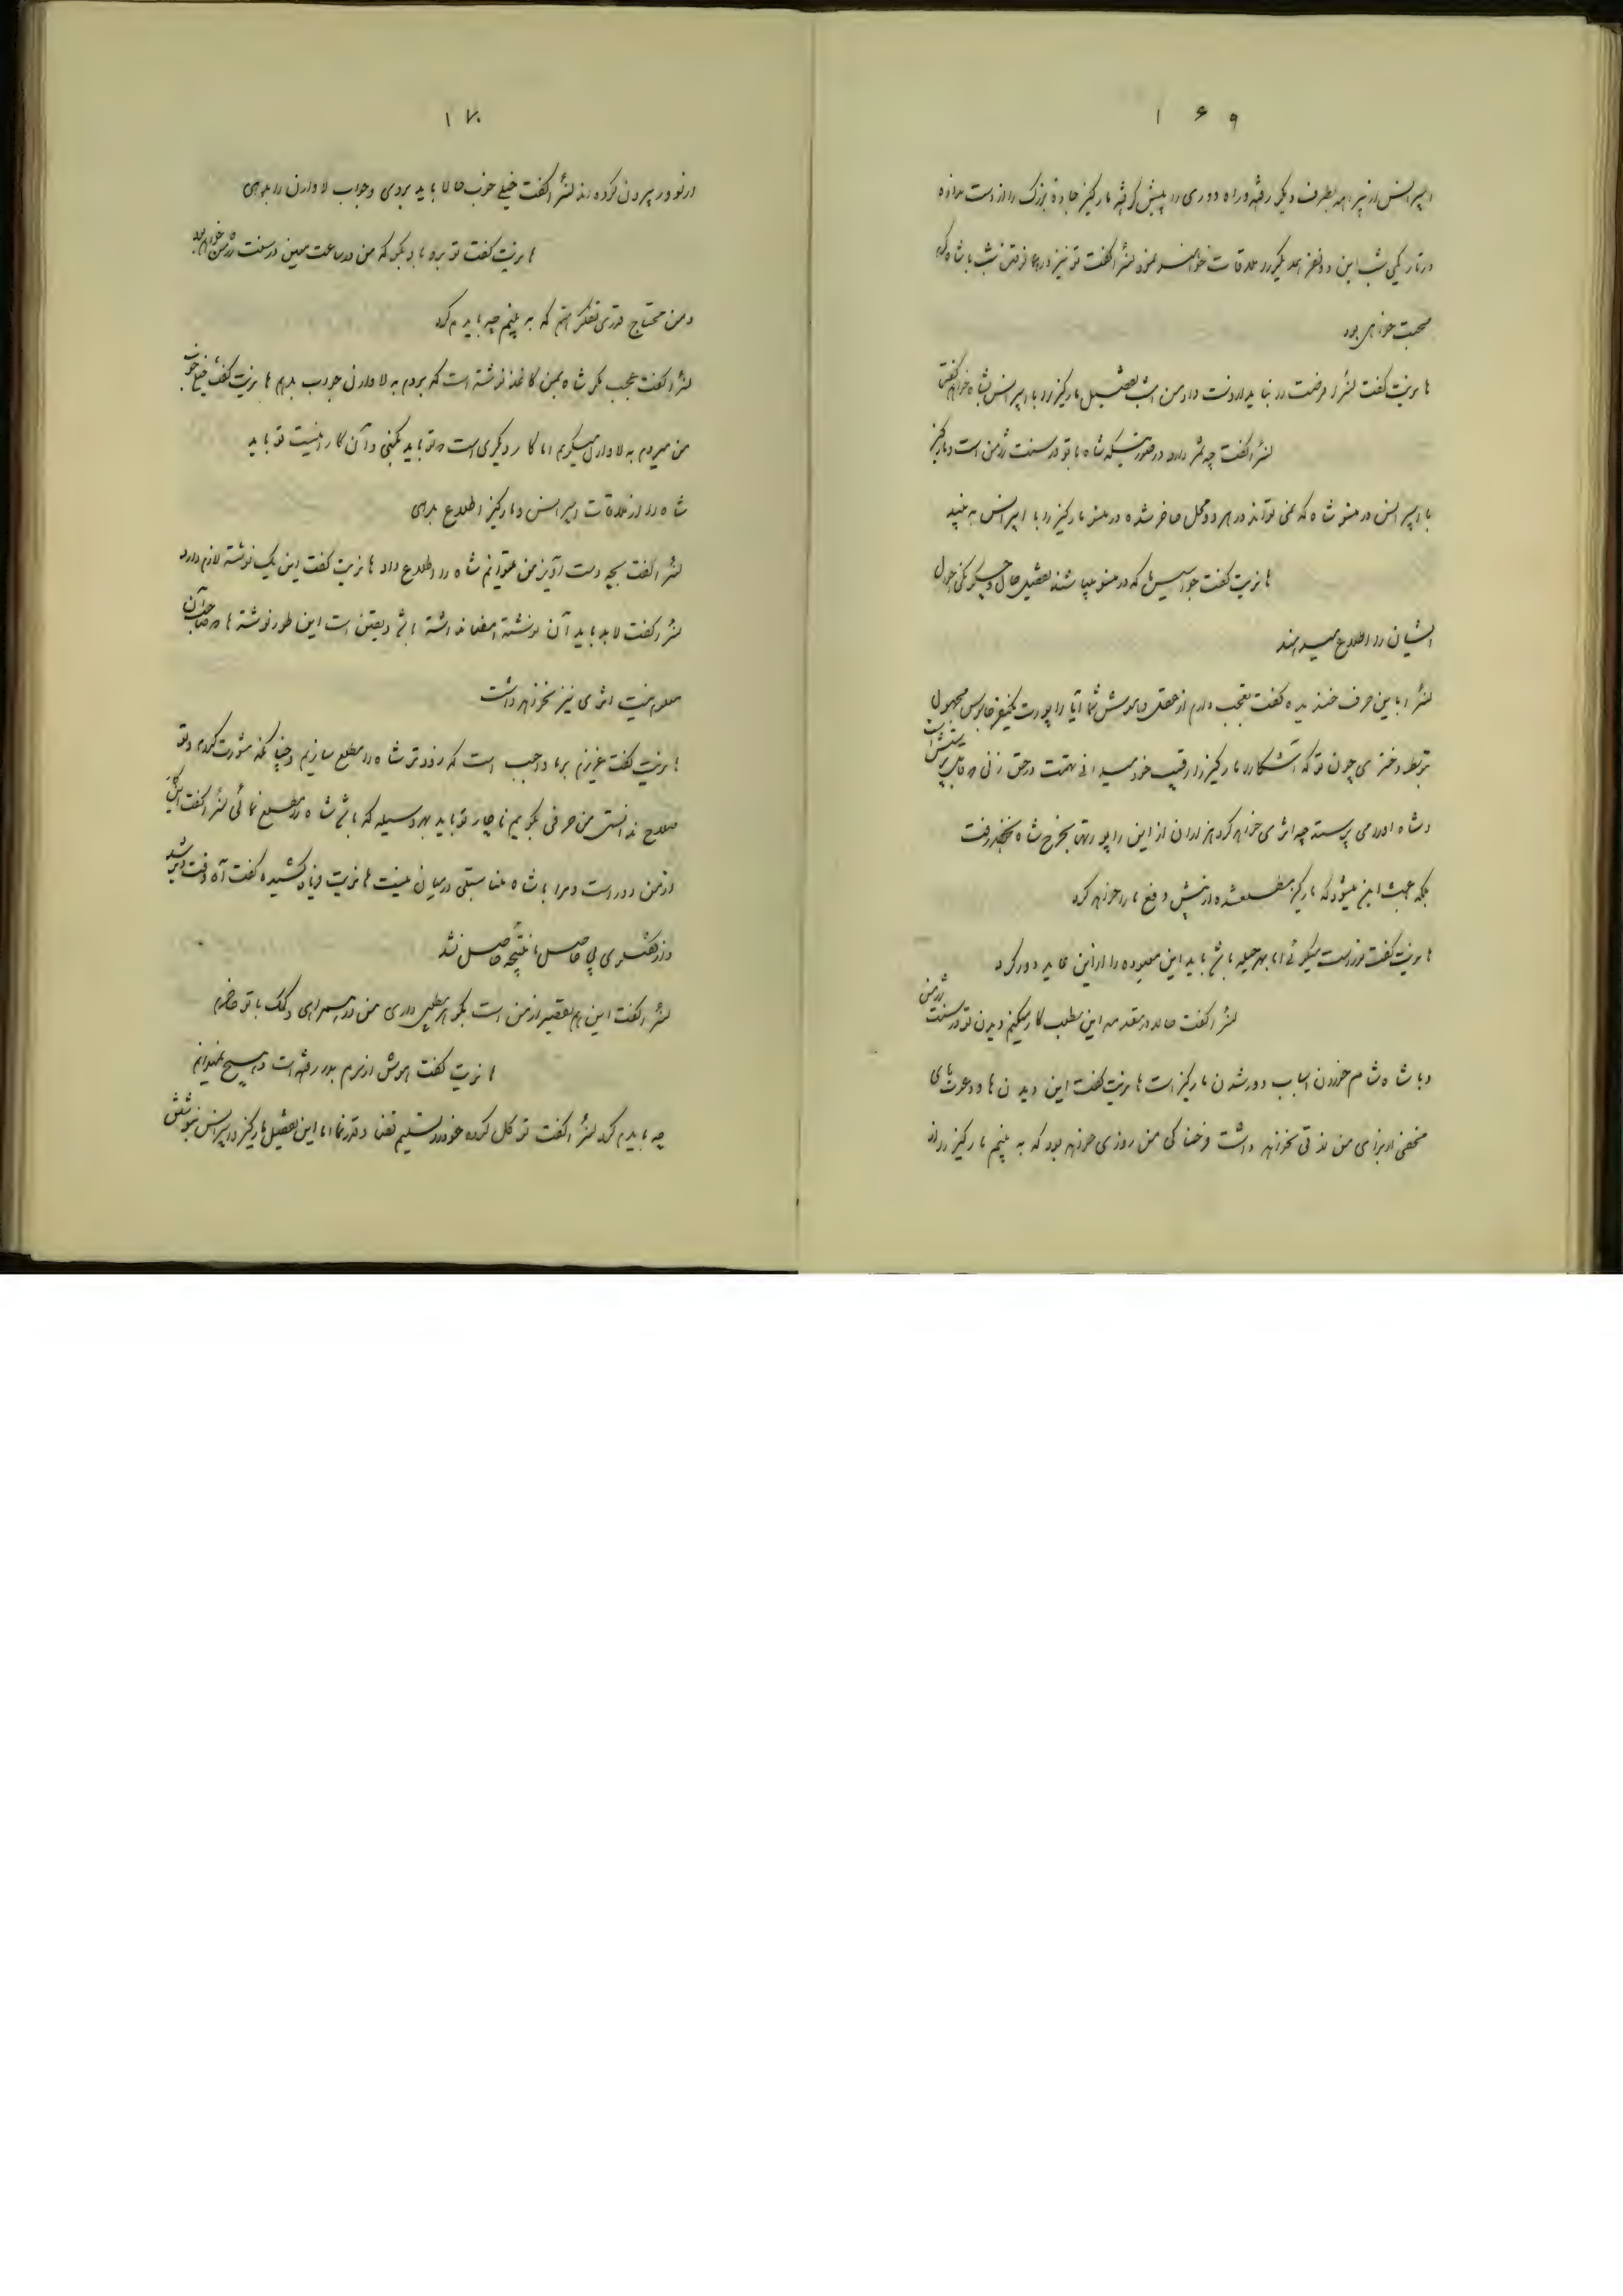 ۱۶۹
پرانس از پیراهه بطرف دیگر رفته و راه دوری را پیش گرفته مارکیز جاده بزرگ را از دست نداده
در تاریکی شب این دو نفر همدیگر را ملاقات خواهند نمود لنزا گفت تو نیز در همان شب با شاه گرم
صحبت خواهی بود
هانریت گفت لنزا فرصت را نباید از دست داد من امشب تفصیل مارکیز را با پرانس بشاه خواهم گفت
لنزا گفت چه ثمر دارد در صورتیکه شاه با تو در سنت ژرمن است و مارکیز
با پرانس در منسو شاه که نمی تواند در هر دو محل حاضر شده در منسو مارکیز را با پرانس به بیند
هانریت گفت جواسیس ها که در منسو میباشند تفصیل حال و چگونگی احوال
ایشان را اطلاع میدهند
لنزا باین حرف خندیده گفت تعجب دارم از عقل و هوش شما آیا راپورت یکنفر جاسوس مجهول
توسط دختری چون تو که آشکارا مارکیز را رقیب خود میدانی تهمت در حق زنی که قابل پرستش است
و شاه او را می پرستد چه اثری خواهد کرد هزاران از این راپورتها بخرج شاه نخواهد رفت
بلکه باعث این میشود که مارکیز مطلع شده از پیش دفع ما را خواهد کرد
هانریت گفت تو راست میگوئی اما بهر حیله باشد باید این معبوده را از این عابد دور کرد
لنزا گفت حالا در مقدمه این مطلب کار میکنیم دیدن تو در سنت ژرمن
و با شاه شام خوردن اسباب دور شدن مارکیز است هانریت گفت این دیدن ها و دعوت های
مخفی از برای من لذتی نخواهد داشت خوشحالی من روزی خواهد بود که به بینم مارکیز را از
۱۷۰
از لوور بیرون کرده اند لنزا گفت خیلی خوب حالا باید بروی و جواب لاوارن را بدهی
هانریت گفت تو برو باو بگو که من در ساعت معین در سنت ژرمن خواهم بود
و من محتاج قدری تفکر هستم که به بینم چه باید کرد
لنزا گفت عجب مگر شاه بمن کاغذ نوشته است که بروم به لاوارن جواب بدهم هانریت گفت خیلی خوب
من میروم به لاوارن میگویم اما کار دیگری است که تو باید بکنی و آن کار اینست تو باید
شاه را از ملاقات پرانس و مارکیز اطلاع بدهی
لنزا گفت بچه دست آویز من میتوانم شاه را اطلاع داد هانریت گفت این یک نوشته لازم دارد
لنزا گفت لابد باید آن نوشته امضا نداشته باشد و یقین است این طور نوشته ها که صاحب آن
معلوم نیست اثری نیز نخواهد داشت
هانریت گفت عزیزم بر ما واجب است که زودتر شاه را مطلع سازیم و چنانکه مشورت کردی و تو
صلاح ندانستی من حرفی بگویم ناچار تو باید بهر وسیله که باشد شاه را مطلع نمائی لنزا گفت این کار
از من دور است و مرا با شاه مناسبتی در میان نیست هانریت فریاد کشیده گفت آه وقت دیر شد
و از گفتگوی بی حاصل ما نتیجه حاصل نشد
لنزا گفت این هم تقصیر از من است بگو هر مطلبی داری من در همراهی و کمک با تو حاضرم
هانریت گفت هوش از سرم بدر رفته است و هیچ نمیدانم
چه باید کرد لنزا گفت توکل کرده خود را تسلیم قضا و قدر نما اما این تفصیل مارکیز و پرانس